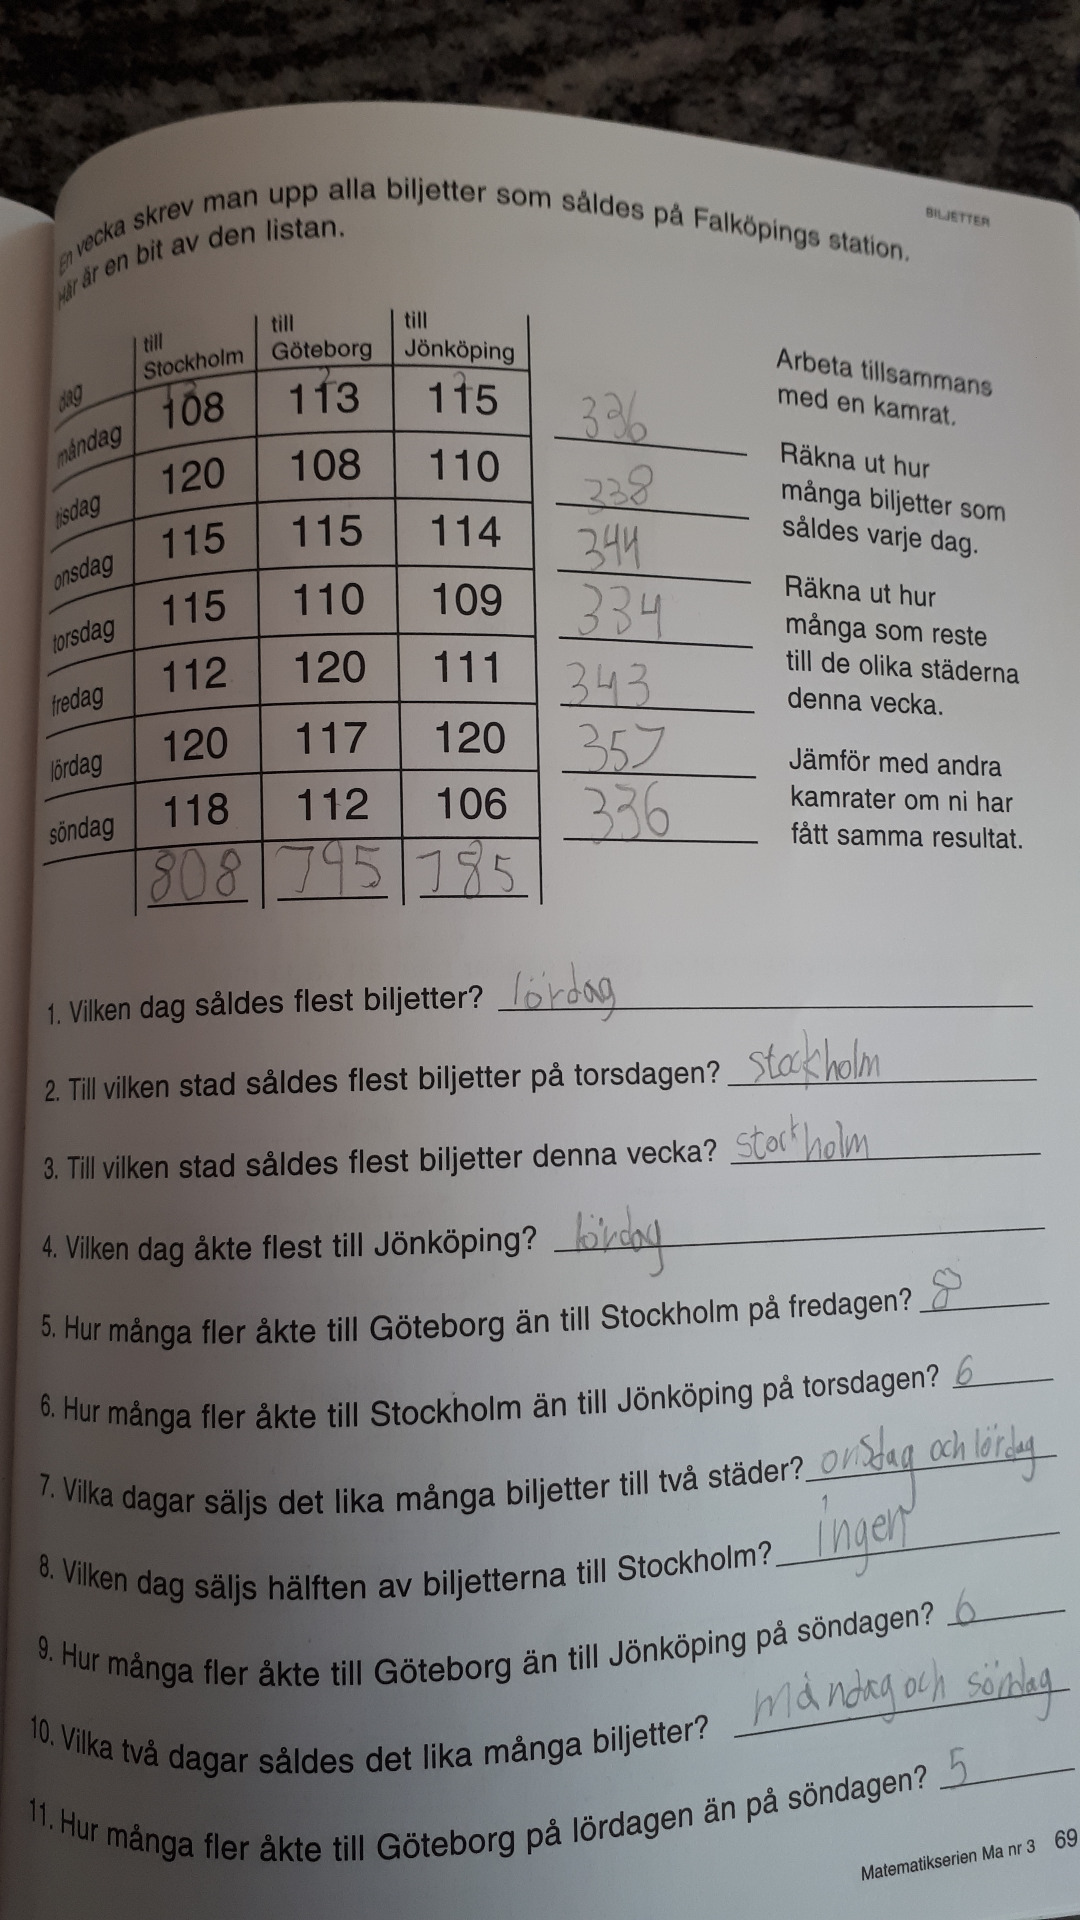 BILJETTER
En vecka skrev man upp alla biljetter som såldes på Falköpings station.
Här är en bit av den listan.
dag till Stockholm till Göteborg till Jönköping
måndag 108 113 115 336
tisdag 120 108 110 338
onsdag 115 115 114 344
torsdag 115 110 109 334
fredag 112 120 111 343
lördag 120 117 120 357
söndag 118 112 106 336
808 795 785
Arbeta tillsammans
med en kamrat.
Räkna ut hur
många biljetter som
såldes varje dag.
Räkna ut hur
många som reste
till de olika städerna
denna vecka.
Jämför med andra
kamrater om ni har
fått samma resultat.
1. Vilken dag såldes flest biljetter? lördag
2. Till vilken stad såldes flest biljetter på torsdagen? stockholm
3. Till vilken stad såldes flest biljetter denna vecka? stockholm
4. Vilken dag åkte flest till Jönköping? lördag
5. Hur många fler åkte till Göteborg än till Stockholm på fredagen? 8
6. Hur många fler åkte till Stockholm än till Jönköping på torsdagen? 6
7. Vilka dagar säljs det lika många biljetter till två städer? onsdag och lördag
8. Vilken dag säljs hälften av biljetterna till Stockholm? ingen
9. Hur många fler åkte till Göteborg än till Jönköping på söndagen? 6
10. Vilka två dagar såldes det lika många biljetter? måndag och söndag
11. Hur många fler åkte till Göteborg på lördagen än på söndagen? 5
Matematikserien Ma nr 3 69